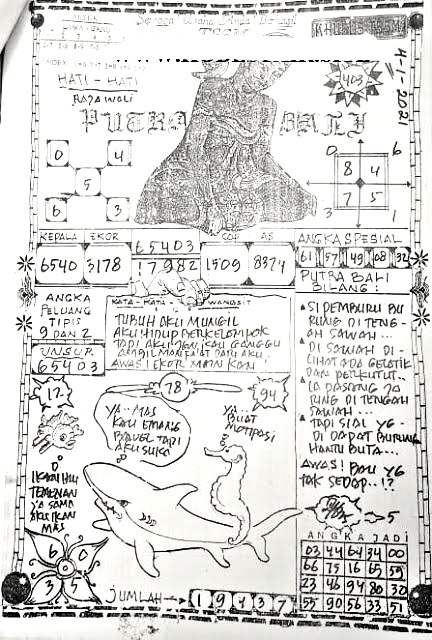 Semoga Usaha Anda Berhasil
HATI - HATI
RAJA WALI
403
4-1-2021
PUTRA BALI
0 4
5
6 3
0 6
8 4
7 5
3 1
KEPALA EKOR 65403 COP AS
6540 3178 17982 1509 8374
ANGKA SPESIAL
61 57 49 68 32
PUTRA BALI
BILANG:
ANGKA
PELUANG
TIPIS
9 DAN 2
UNSUR
65403
KATA - KATA WANGSIT
TUBUH AKU MUNGIL
AKU HIDUP BERKELOMPOK
TAPI AKU
AMBIL MANFAAT DARI AKU
AWAS! EKOR MAIN KAN!
SI PEMBURU BU
RUNG DI TENG-
AH SAWAH...
DI SAWAH DI-
LIHAT ADA GELATIK
DAN PERKUTUT..
RUNG DI TENGAH
SAWAH...
TAPI SIAL YG-
DI DAPAT BURUNG
HANTU BUTA...
AWAS! BAU YG
TAK SEDAP..!?
5
12
78
94
YA.. MAS
KAU EMANG
TAPI
AKU SUKA
YA..
BUAT
MOTIPASI
IKAN HIU
TEMENAN
YA SAMA
AKU IKAN
MAS
6 0
3 5
JUMLAH → 1 9 4 3 7
ANGKA JADI
03 44 64 34 00
66 75 16 65 59
23 46 94 80 30
55 90 56 33 51